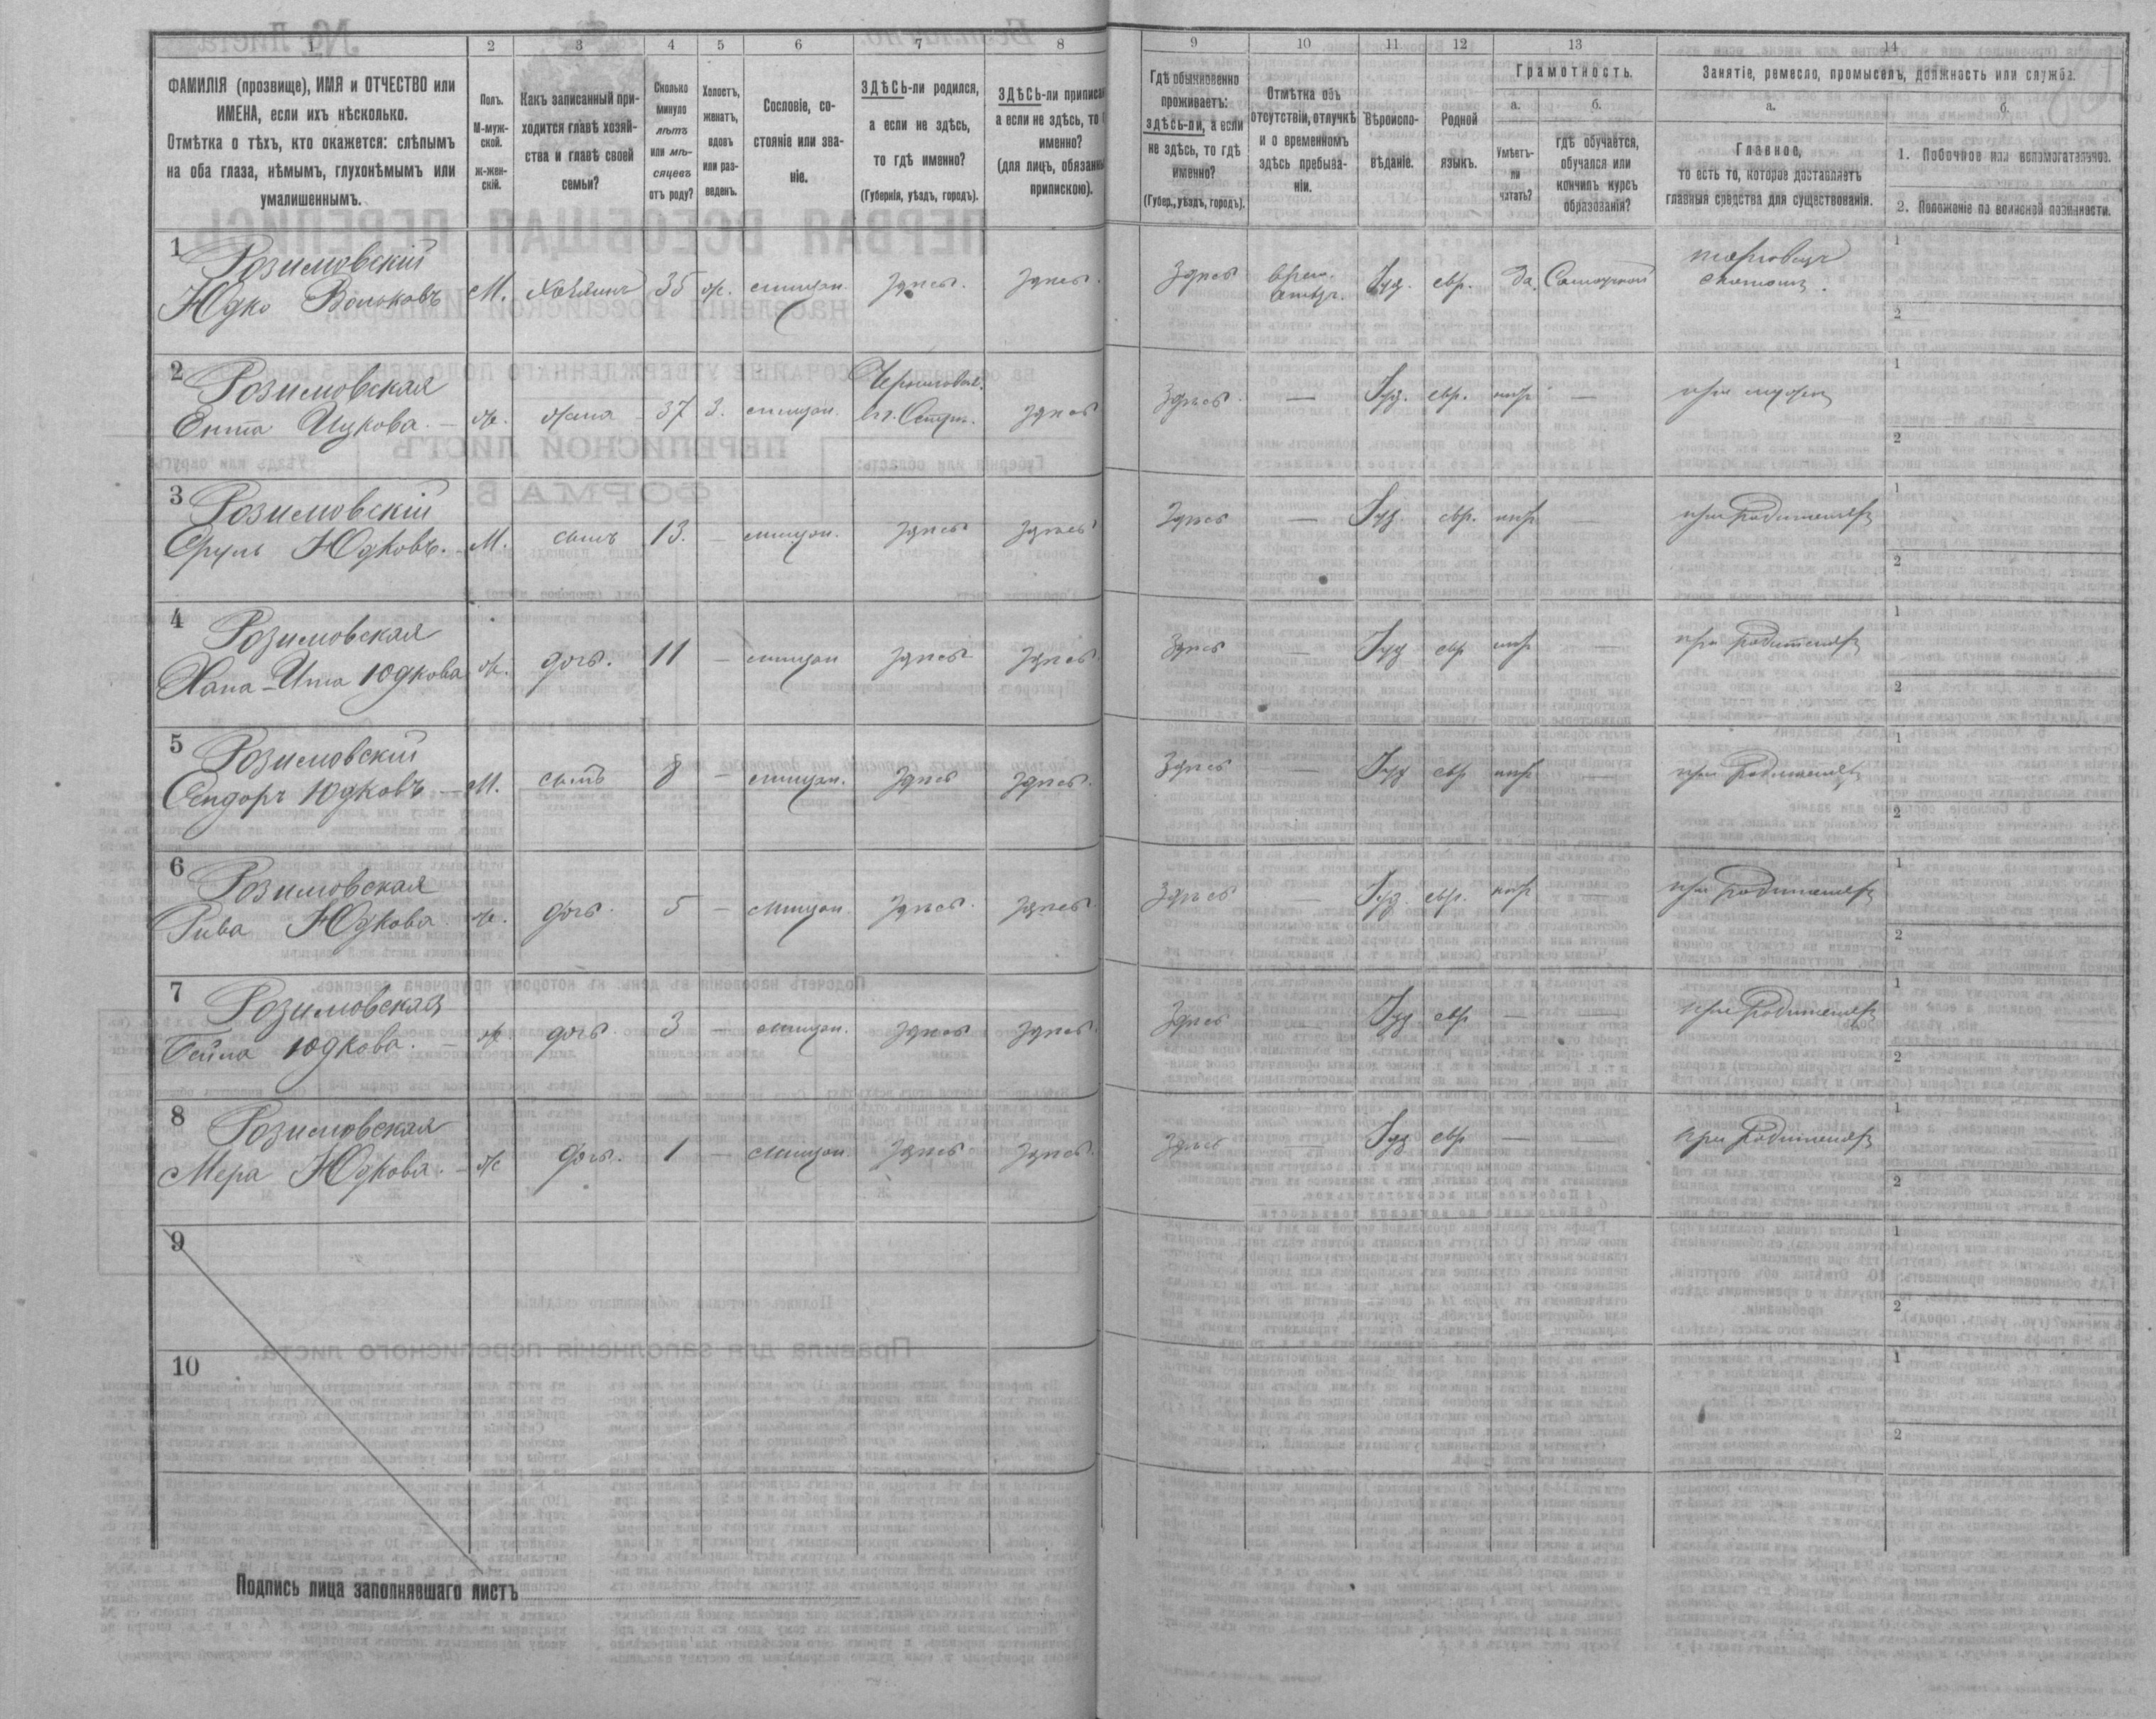 1 2 3 4 5 6 7 8 9 10 11 12 13 14
ФАМИЛІЯ (прозвище), ИМЯ и ОТЧЕСТВО или
ИМЕНА, если ихъ нѣсколько.
Отмѣтка о тѣхъ, кто окажется: слѣпымъ
на оба глаза, нѣмымъ, глухонѣмымъ или
умалишеннымъ.
Полъ.
М-муж-
ской.
ж-жен-
скій.
Какъ записанный при-
ходится главѣ хозяй-
ства и главѣ своей
семьи?
Сколько
минуло
лѣтъ
или мѣ-
сяцевъ
отъ роду?
Холостъ,
женатъ,
вдовъ
или раз-
веденъ.
Сословіе, со-
стояніе или зва-
ніе.
ЗДѢСЬ-ли родился,
а если не здѣсь,
то гдѣ именно?
(Губернія, уѣздъ, городъ).
ЗДѢСЬ-ли приписа
а если не здѣсь, то
именно?
(для лицъ, обязанн
припискою).
Гдѣ обыкновенно
проживаетъ:
здѣсь-ли, а если
не здѣсь, то гдѣ
именно?
(Губер., уѣздъ, городъ).
Отмѣтка объ
отсутствіи, отлучкѣ
и о временномъ
здѣсь пребыва-
ніи.
Вѣроиспо-
вѣданіе.
Родной
языкъ.
Грамотность.
а.
Умѣетъ-
ли
читать?
б.
гдѣ обучается,
обучался или
кончилъ курсъ
образованія?
Занятіе, ремесло, промыселъ, должность или служба.
а.
Главное,
то есть то, которое доставляетъ
главныя средства для существованія.
б.
1. Побочное или вспомогательное.
2. Положеніе по воинской повинности.
1 Розимовскій
Юдко Вольковъ М. Хозяинъ 35 ж. мищан. здѣсь. здѣсь. Здѣсь Іуд. евр. да.
1
2
2 Розимовская
Ента Ицкова. — ж. жена 37 З. мищан. здѣсь Здѣсь. — Іуд. евр. —
1
2
3 Розимовскій
Сруль Юдковъ. М. сынъ 13. — мищан. здѣсь здѣсь Здѣсь — Іуд. евр. — при родителяхъ
1
2
4 Розимовская
Хана-Ита Юдкова ж. дочь. 11 — мищан здѣсь здѣсь. Здѣсь — Іуд евр — при родителяхъ
1
2
5 Розимовскій
Сендоръ Юдковъ — М. сынъ 8 — мищан. здѣсь здѣсь. Здѣсь — Іуд евр — при родителяхъ
1
2
6 Розимовская
Рива Юдкова ж. дочь. 5 — мищан. здѣсь. здѣсь. Здѣсь — Іуд. евр. — при родителяхъ
1
2
7 Розимовская
Бейла Юдкова. — ж. дочь. 3 — мищан. здѣсь здѣсь. Здѣсь — Іуд евр — — при родителяхъ
1
2
8 Розимовская
Мера Юдкова. — ж дочь. 1 — мищан здѣсь здѣсь. Здѣсь — Іуд евр — — при родителяхъ
1
2
9
1
2
10
1
2
Подпись лица заполнявшаго листъ